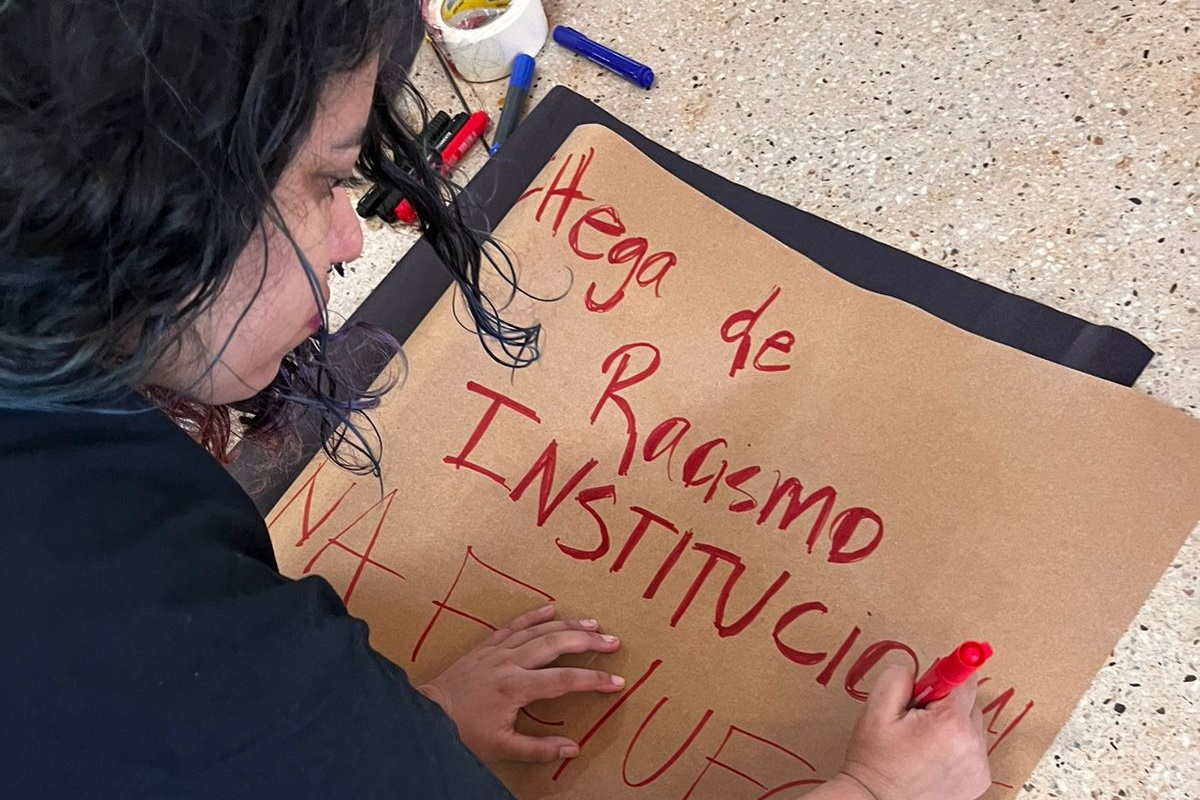 CHega de
Racismo
INSTITUCION
NA F /UF